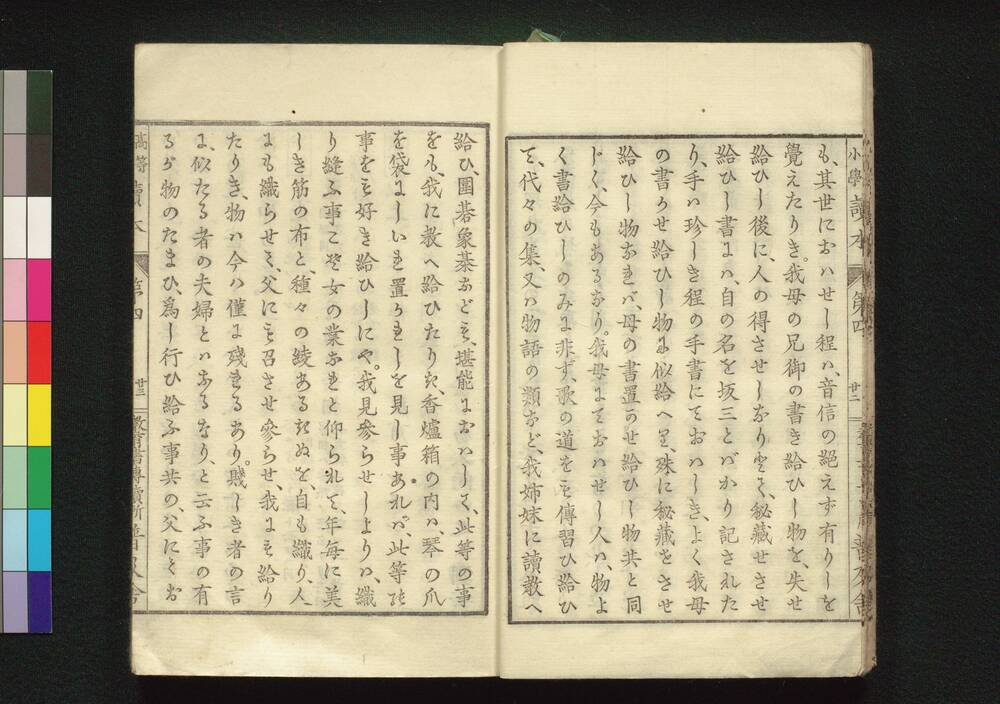 も、其世におハせし程ハ、音信の絕えず有りしを
覺えたりき。我母の兄御の書き給ひし物を、失せ
給ひし後に、人の得させしなりとて、秘藏せさせ
給ひし書にハ、自の名を坂三とバかり記された
り、手ハ珍しき程の手書にておハしき、よく我母
の書かせ給ひし物に似給へり、殊に秘藏をさせ
給ひし物なれバ、母の書置かせ給ひし物共と同
じく、今もあるなり。我母にておハせし人ハ、物よ
く書給ひしのみに非ず、歌の道をも傳習ひ給ひ
て、代々の集、又ハ物語の類など、我姉妹に讀敎へ
給ひ、圍碁象棊なども、堪能におハしまして、此等の事
をも、我に敎へ給ひたりき、香爐箱の內ハ琴の爪
を袋にしいれ置かれしを見し事あれバ、此等の
事をも好き給ひしにや。我見參らせしよりハ、織
り縫ふ事こそ女の業なれと仰られて、年每に美
しき筋の布と、種々の綾あるきぬを、自も織り、人
にも織らせて、父にも召させ參らせ、我にも給り
たりき、物ハ今ハ僅に殘れるあり。賤しき者の言
に、似たる者の夫婦とハなるなり、と云ふ事の有
るが物のたまひ、爲し行ひ給ふ事共の、父にもお
小學讀本 第四 廿二
高等讀本 第四 廿三